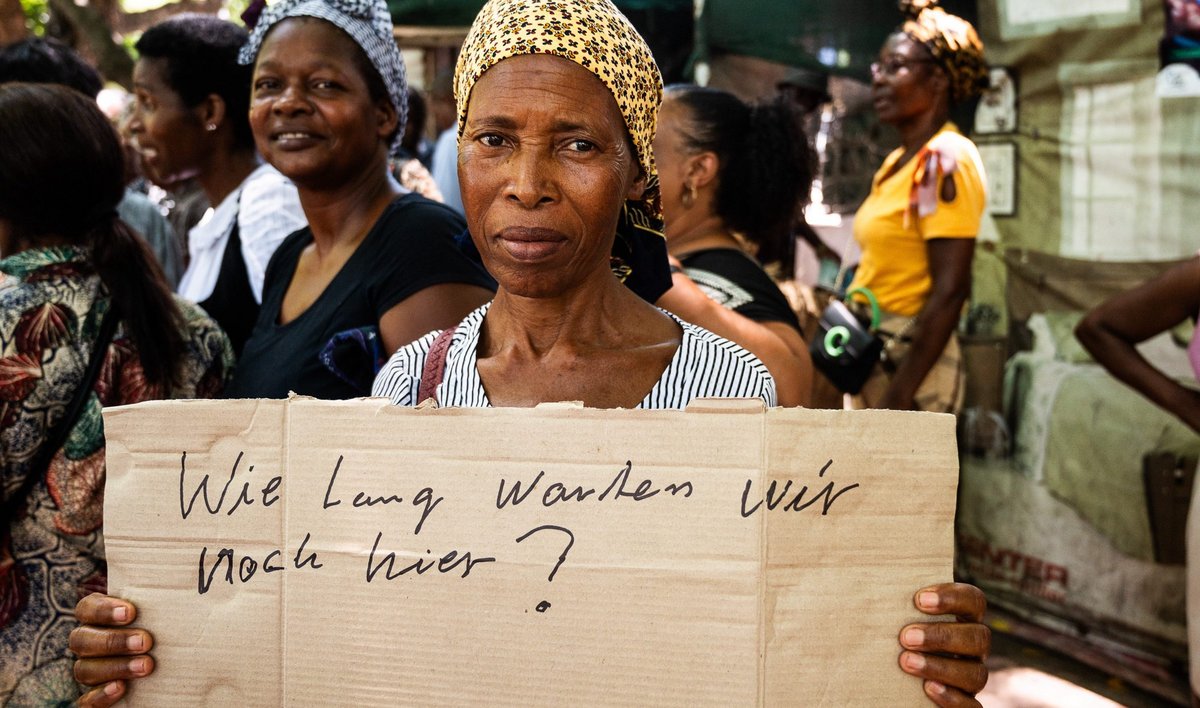 Wie Lang warten wir
noch hier?